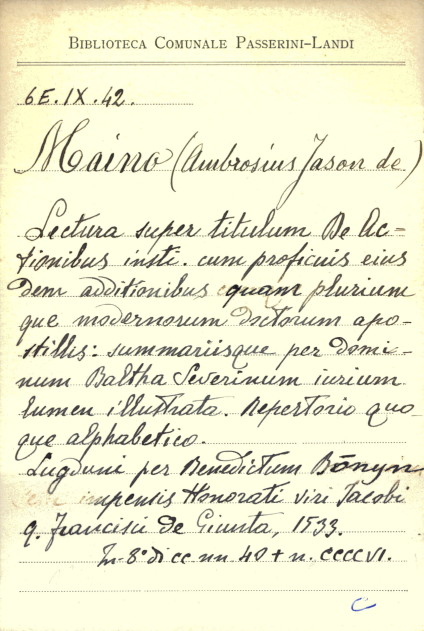 BIBLIOTECA COMUNALE PASSERINI-LANDI
6E.IX.42.
Maino (Ambrosius Jason de)
Lectura super titulum De Ac=
tionibus insti. cum proficuis eius
dem additionibus quam plurium
que modernorum doctorum apo-
stillis: summariisque per domi-
num Baltha Severinum iurium
lumen illustrata. Repertorio quo-
que alphabetico.
Lugduni per Benedictum Bōnyn
impensis Honorati viri Jacobi
q. Francisci de Giunta, 1533.
In-8° di cc nn 40 + n. CCCCVI.